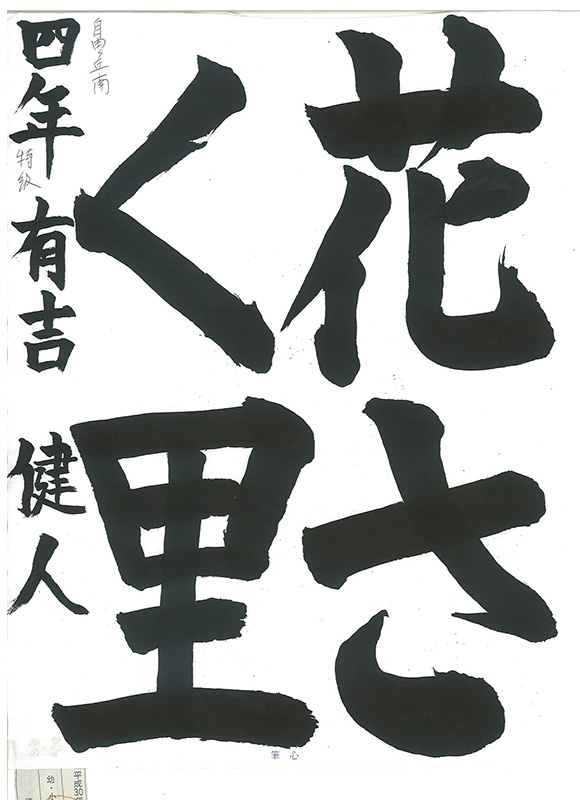 花さ
く里
四年 有吉 健人
特級
自由ヶ丘南
心筆
平成30年
幼・小